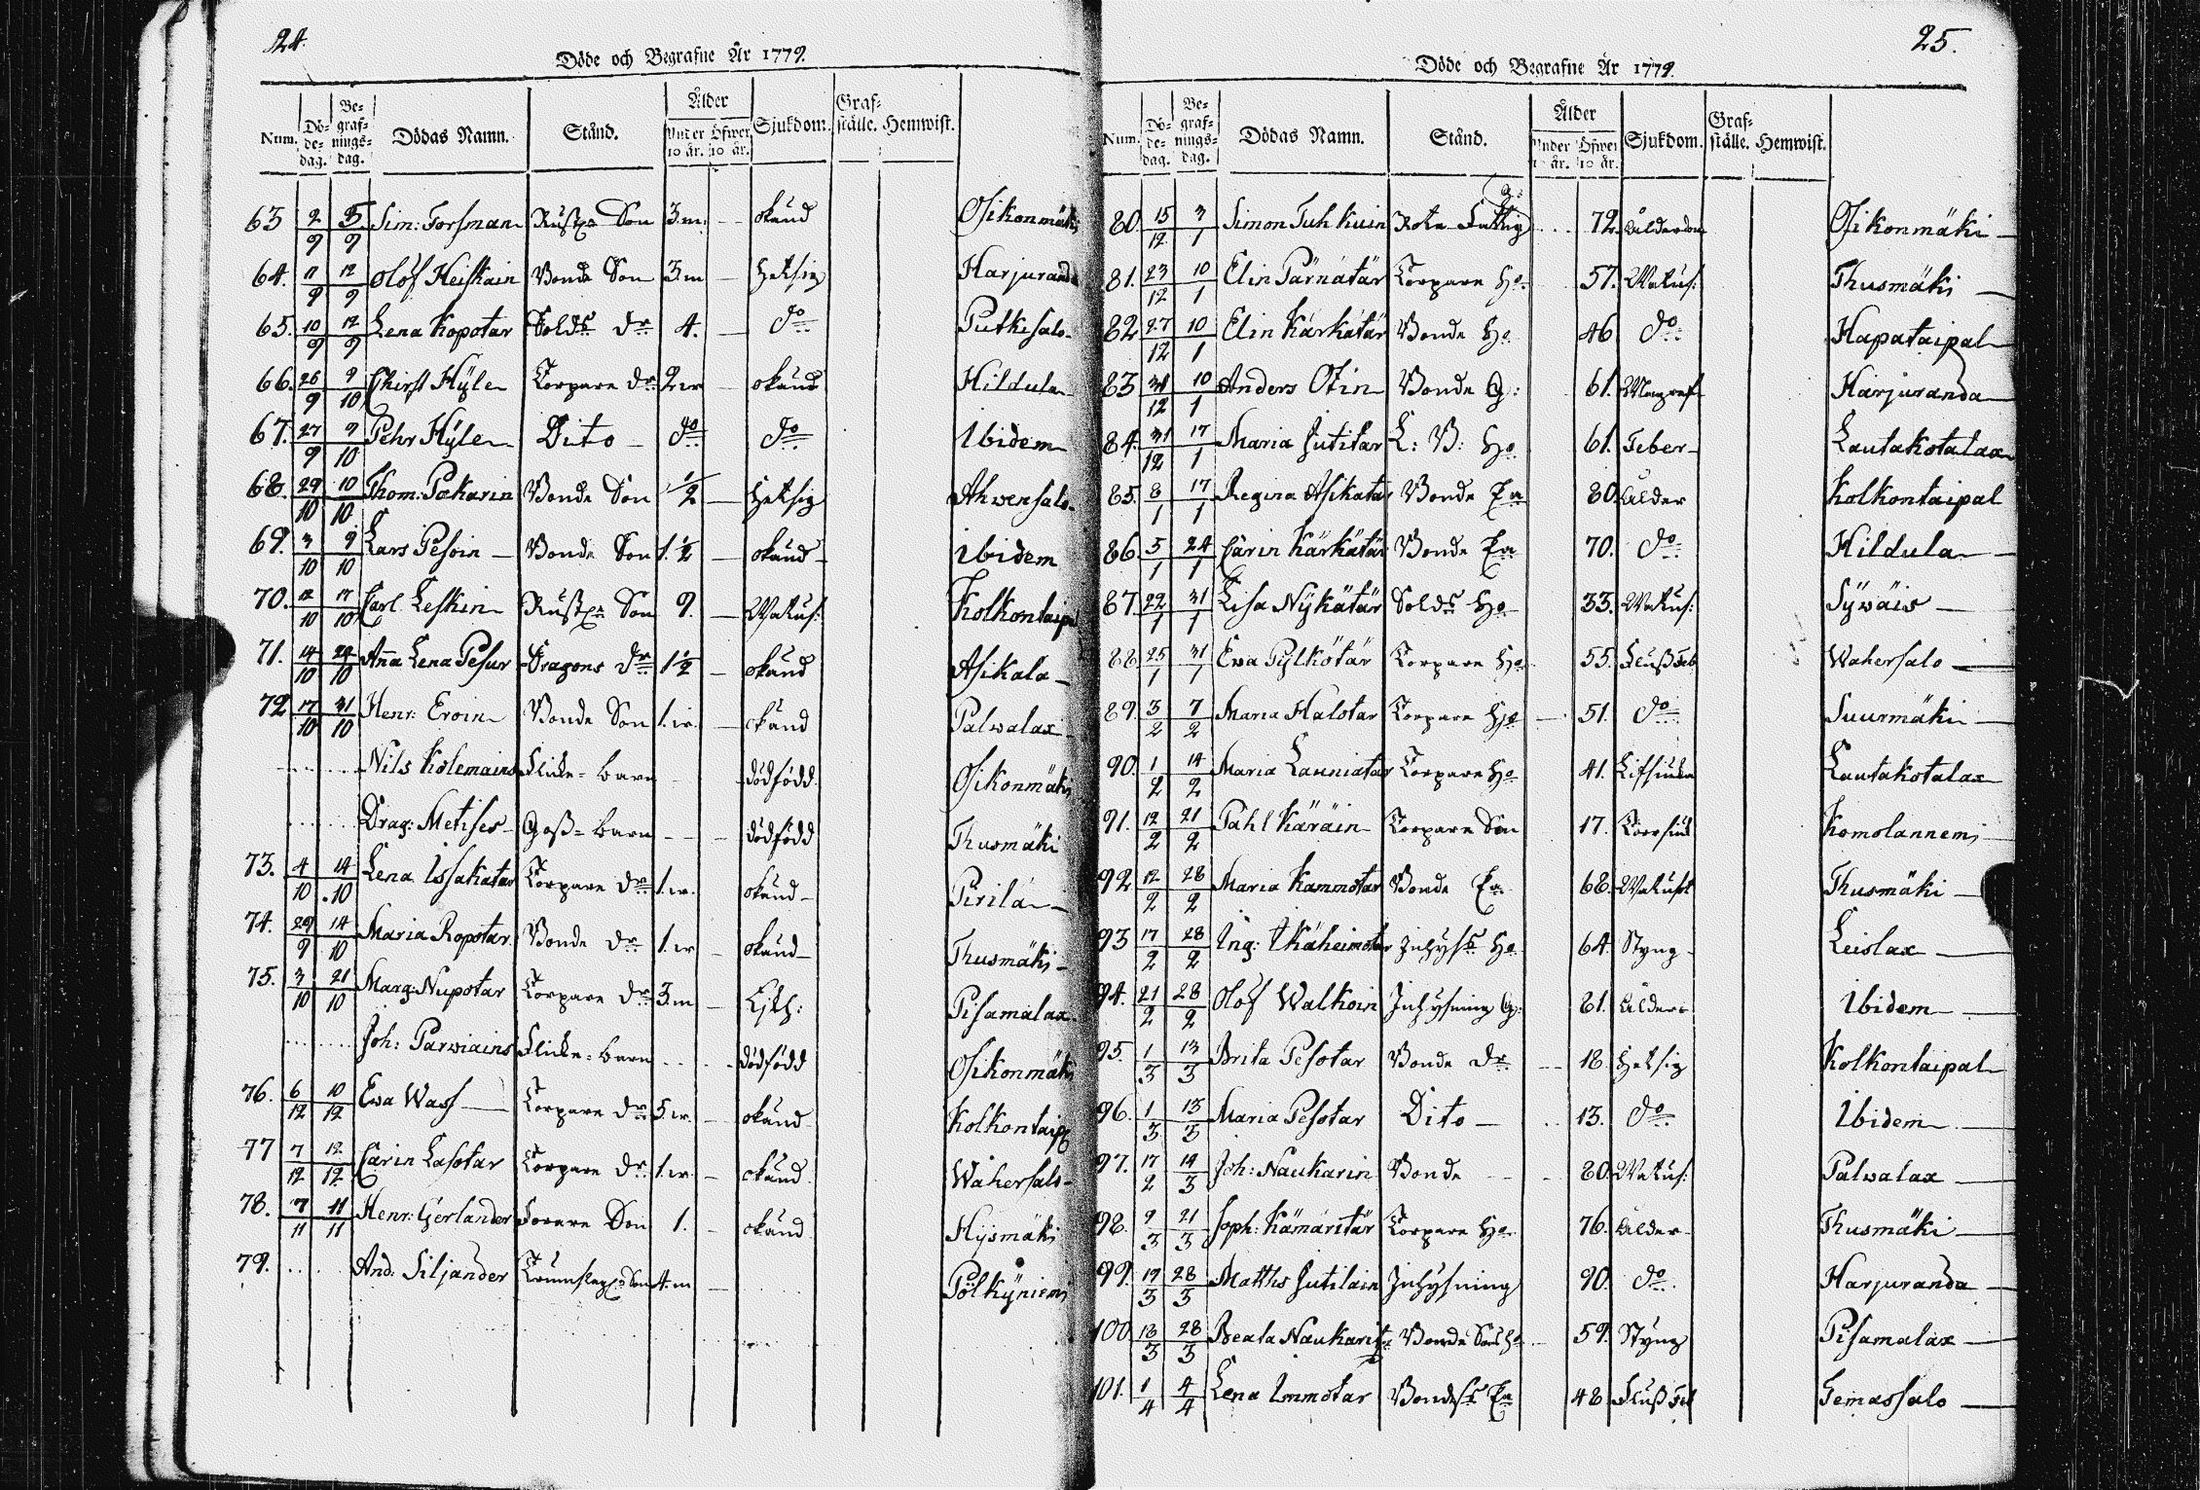 24.
Döde och Begrafne År 1779.
Num. Döde-dag. Begrafnings-dag. Dödas Namn. Stånd. Ålder Under 10 år. Öfwer 10 år. Sjukdom. Grafställe. Hemwist.
63 2/9 5/9 Sim: Forsman Rust: Son 3 m: okänd Osikonmäki
64. 11/9 12/9 Olof Heiskain Bonde Son 3 m Hetsig Harjuranda
65. 10/9 12/9 Lena Kopotar Sold: dr 4. do Putkisalo
66. 26/9 9/10 Christ Hyle Torpare dr 2 okänd Hildula
67. 27/9 9/10 Pehr Hyle Dito do do Ibidem
68. 29/10 10/10 Thom: Pakarin Bonde Son 1/2 Hetsig Ahwensalo
69. 3/10 9/10 Lars Pesoin Bonde Son 1.1/2 okänd Ibidem
70. 12/10 17/10 Carl Leskin Rust: Son 9. Kolkontaip
71. 14/10 24/10 Aña Lena Pesur Dragons dr 1 1/2 okänd Asikala
72 17/10 31/10 Henr: Eroin Bonde Son 1. okänd Palwalax
Nils Kolemains Flicke-barn dödfödd Osikonmäki
Drag: Metises Goß-barn dödfödd Thusmäki
73. 4/10 14/10 Lena Issakatar Torpare dr 1. okänd Pirilä
74. 29/9 14/10 Maria Ropotar Bonde dr 1. okänd Thusmäki
75. 3/10 21/10 Marg: Nupotar Torpare dr 3. m Pisamalax
Joh: Parwiains Flicke-barn dödfödd Osikonmäki
76. 6/12 10/12 Ewa Wass Torpare dr 5 okänd Kolkontaip
77 7/12 12/12 Carin Lasotar Torpare dr 1. okänd Wahersalo
78. 7/11 11/11 Henr: Gerlander Son 1. okänd Hysmäki
79. And: Siljander Son 4. m Pölkyniemi
25.
Döde och Begrafne År 1779.
Num. Döde-dag. Begrafnings-dag. Dödas Namn. Stånd. Ålder Under 10 år. Öfwer 10 år. Sjukdom. Grafställe. Hemwist.
80. 15/12 3/1 Simon Tuhkuin Rote Fattig 72. Ålderdom Osikonmäki
81. 23/12 10/1 Elin Pärnätär Torpare Ho 57. Thusmäki
82 27/12 10/1 Elin Kärkätär Bonde Ho 46 do Hapataipal
83 31/12 10/1 Anders Otin Bonde G: 61. Harjuranda
84. 31/12 17/1 Maria Jutitar L: B: Ho 61. Feber Lautakotalax
85. 8/1 17/1 Regina Asikatar Bonde Ea 80. Ålder Kolkontaipal
86. 5/1 24/1 Carin Kärkätär Bonde Ea 70. do Hildula
87. 22/1 31/1 Lisa Nykätär Sold: Ho 33. Sywäis
88 25/1 31/1 Ewa Pylkötär Torpare Ho 55. Fluß Feb Wahersalo
89. 3/2 7/2 Maria Halotar Torpare Ho 51. do Suurmäki
90. 1/2 14/2 Maria Launiatar Torpare Ho 41. Lautakotalax
91. 12/2 21/2 Påhl Käräin Torpare Son 17. Komolannemi
92 12/2 28/2 Maria Kammotar Bonde Ea 68. Thusmäki
93 17/2 28/2 Ing: Käheimotar Inhys: Ho 64. Styng Leislax
94. 21/2 28/2 Olof Walkoin Inhysning G: 81. Ålder Ibidem
95. 1/3 13/3 Brita Pesotar Bonde dr 18. Hetsig Kolkontaipal
96. 1/3 13/3 Maria Pesotar Dito 13. do Ibidem
97. 17/2 14/3 Joh: Naukarin Bonde 80. Palwalax
98. 9/3 21/3 Soph: Kämäritär Torpare Ho 76. Ålder Thusmäki
99. 19/3 28/3 Matths Jutilain Inhysning 90. do Harjuranda
100. 18/3 28/3 Beata Naukarit Bonde Ho 59. Styng Pisamalax
101. 1/4 4/4 Lena Immotar Bondes Ea 48 Fluß Feb Temassalo